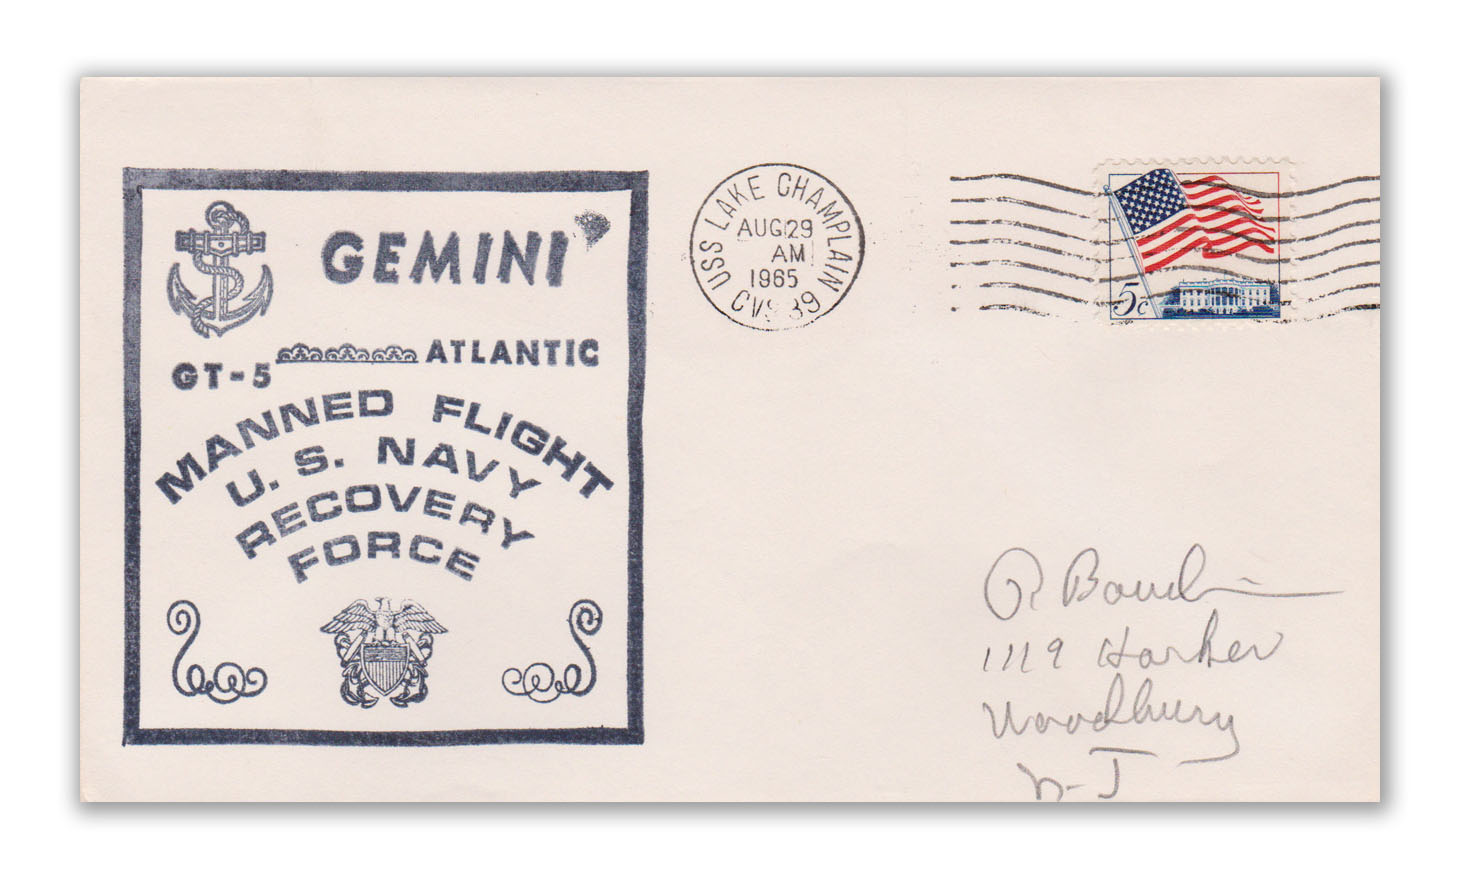 GEMINI
GT-5 ATLANTIC
MANNED FLIGHT
U.S. NAVY
RECOVERY
FORCE
USS LAKE CHAMPLAIN
AUG 29
AM
1965
CVS 39
5c
1119 Harker
Woodbury
N-J